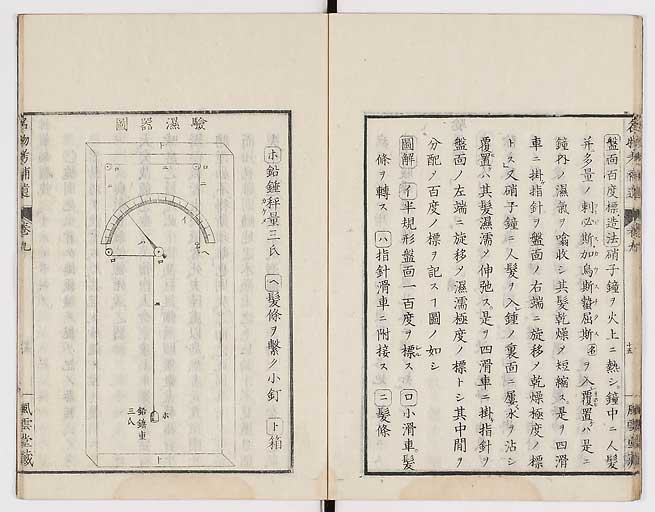 盤面百度標造法硝子鐘ヲ火上ニ熱シ鐘中ニ人髮
并多量ノ剌必斯加烏斯蠻屈斯ヲ入覆置ハ是ニ
鐘内ノ濕氣ヲ噏收シ其髮乾燥メ短縮ス是ヲ四滑
車ニ掛指針ヲ盤面ノ右端ニ旋移メ乾燥極度ノ標
トス又硝子鐘ニ人髮ヲ入鐘ノ裏面ニ屢水ヲ沾シ
覆置ハ其髮濕濡メ伸弛ス是ヲ四滑車ニ掛指針ヲ
盤面ノ左端ニ旋移メ濕濡極度ノ標トシ其中間ヲ
分配メ百度ノ標ヲ記スヿ圖ノ如シ
圖解 イ 半規形盤面一百度ヲ標ス ロ 小滑車髮
條ヲ轉ス ハ 指針滑車ニ附接ス ニ 髮條
ホ 鉛錘秤量三氏 ヘ 髮條ヲ繫ク小釘 ト 箱
カケメ
驗濕器圖
ト
ロ
ロ
ニ
イ
ヘ
ロ
ロ
ハ
ニ
ホ
鉛錘重
三氏
ト
卷九
風雲堂藏
十五